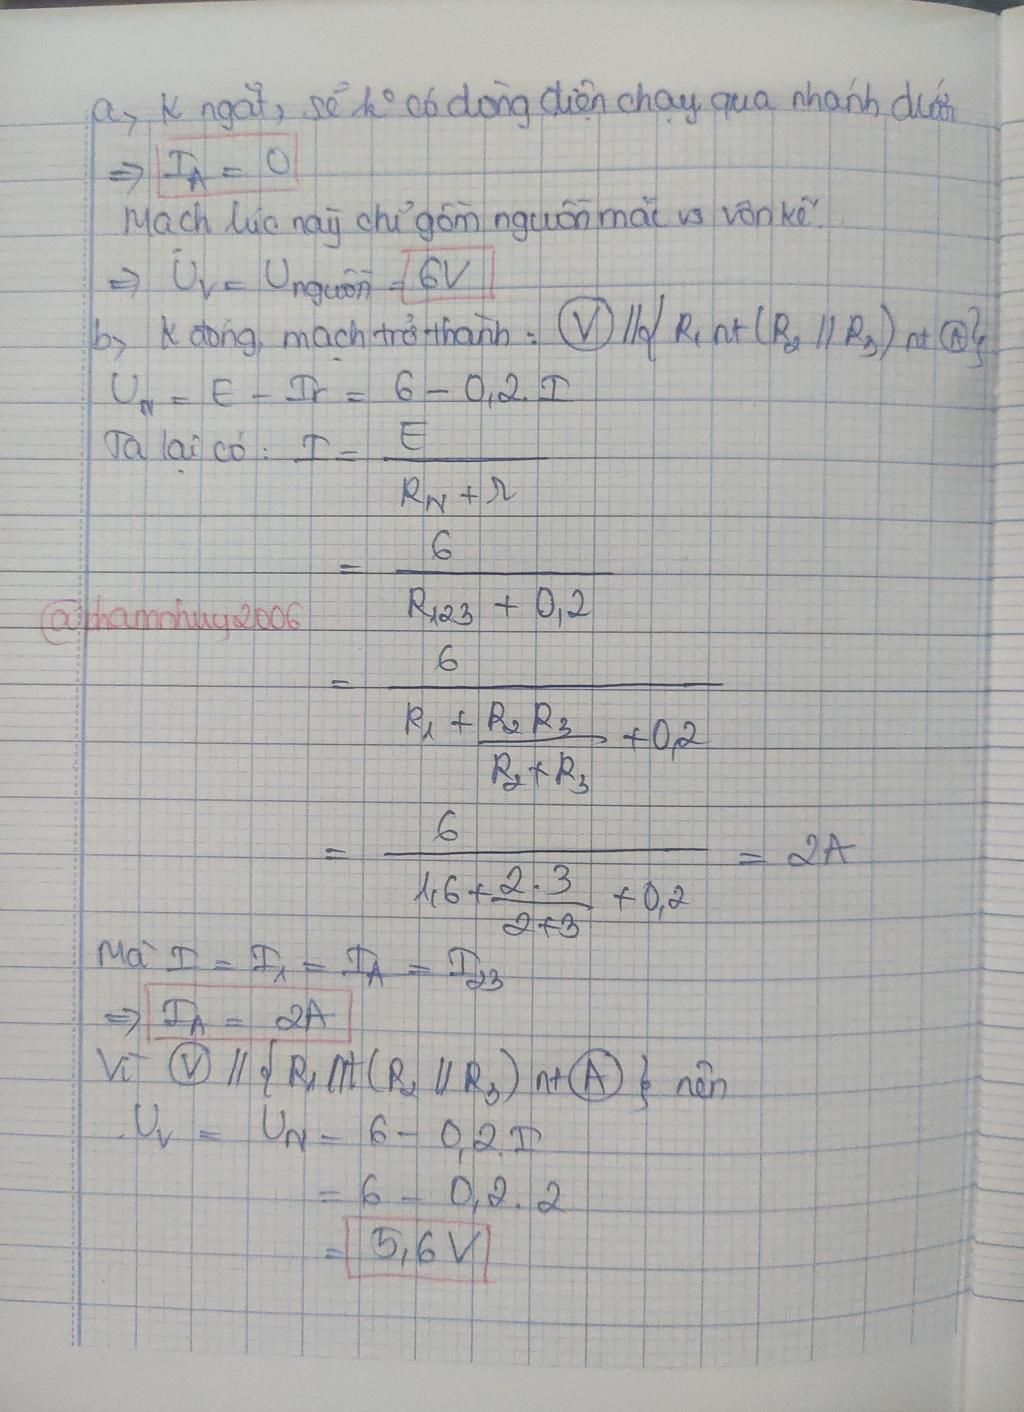 a, K ngắt, sẽ ko có dòng điện chạy qua nhánh dưới
=> I_A = 0
Mạch lúc này chỉ gồm nguồn mắc vs vôn kế.
=> U_V = U_nguồn = 6V
b, K đóng, mạch trở thành : (V) // { R_1 nt (R_2 // R_3) nt (A) }
U_N = E - Ir = 6 - 0,2.I
Ta lại có : I = E / (R_N + r)
= 6 / (R_123 + 0,2)
@phamnhuy2006
= 6 / (R_1 + R_2 R_3 / (R_2 + R_3) + 0,2)
= 6 / (1,6 + 2.3 / (2+3) + 0,2) = 2A
Mà I = I_1 = I_A = I_23
=> I_A = 2A
Vì (V) // { R_1 nt (R_2 // R_3) nt (A) } nên
U_V = U_N = 6 - 0,2.I
= 6 - 0,2.2
= 5,6V